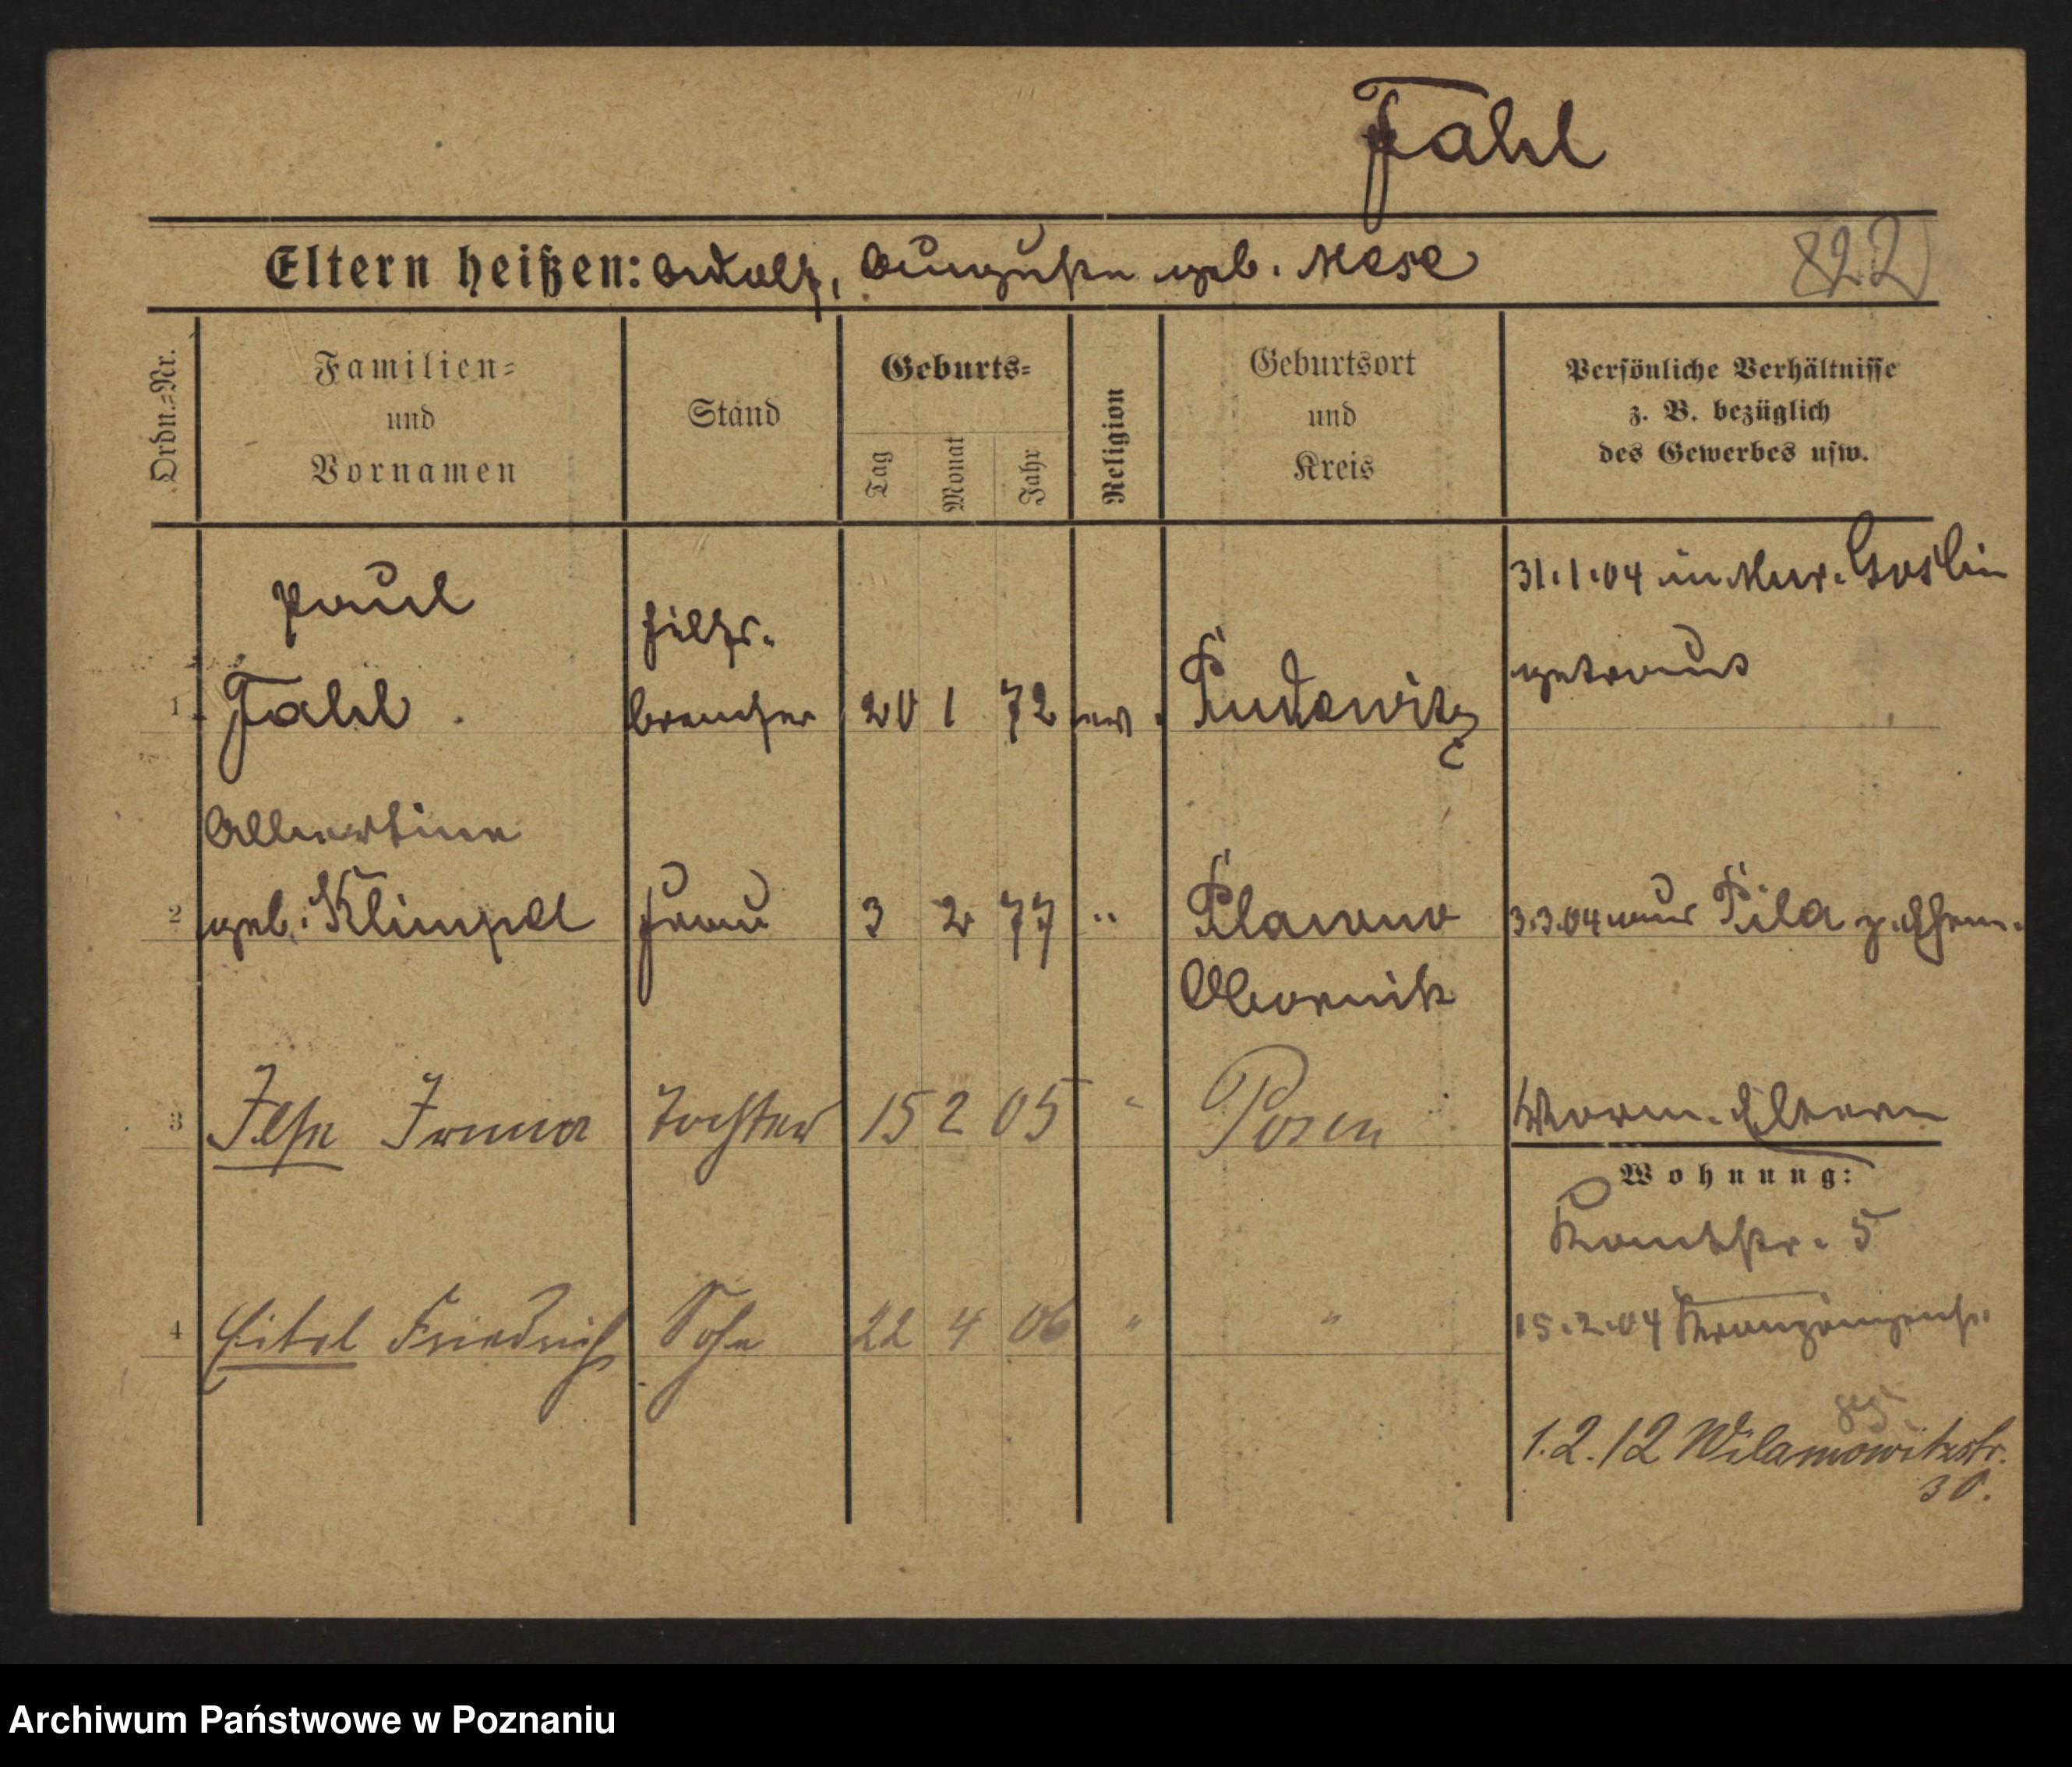 Fahl
Eltern heißen: Adolf, Auguste geb. Mese
822
Ordn.-Nr.
Familien-
und
Vornamen
Stand
Geburts-
Tag
Monat
Jahr
Religion
Geburtsort
und
Kreis
Persönliche Verhältnisse
z. B. bezüglich
des Gewerbes usw.
31.1.04 in Mur. Goslin
getraut
Paul
Hilfs-
1 Fahl bremser 20 1 72 ev. Pudewitz
Albertine
2 geb. Klimpel Frau 3 2 77 " Plawno 3.3.04 aus Pila z. Ehem.
Obornik
3 Ilse Irma Tochter 15 2 05 " Posen Worm. Eltern
Wohnung:
Kantstr. 5
4 Eitel Friedrich Sohn 22 4 06 " " 15.2.04 Kronprinzenstr.
1.2.12 Wilamowitzstr.
30.
Archiwum Państwowe w Poznaniu